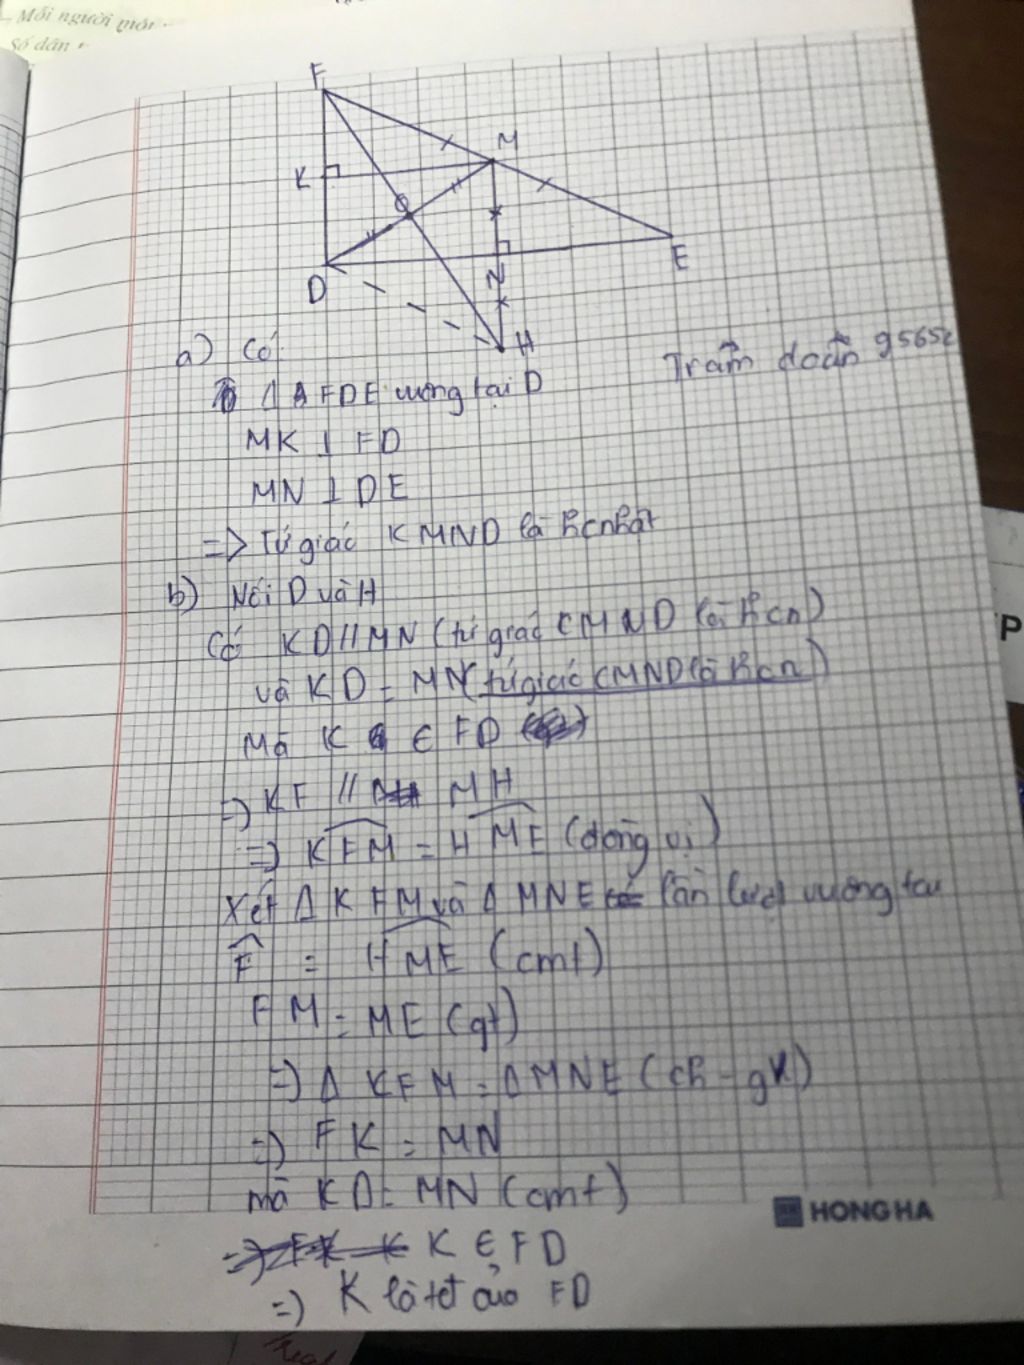 Mỗi người một
Số dân
F
M
K
O
E
D
N
H
a) Có
Δ FDE vuông tại D
MK ⊥ FD
MN ⊥ DE
=> Tứ giác KMND là hcnhật
b) Nối D và H
Có KD // MN (tứ giác CMND là hcn)
và KD = MN (tứ giác CMND là hcn)
Mà K ∈ FD
=> KF // MH
=> KFM = HME (đồng vị)
Xét Δ KFM và Δ MNE lần lượt vuông tại
F = HME (cmt)
FM = ME (gt)
=> Δ KFM = Δ MNE (ch - gn)
=> FK = MN
mà KD = MN (cmt)
K ∈ FD
=> K là tđ của FD
HONG HA
P